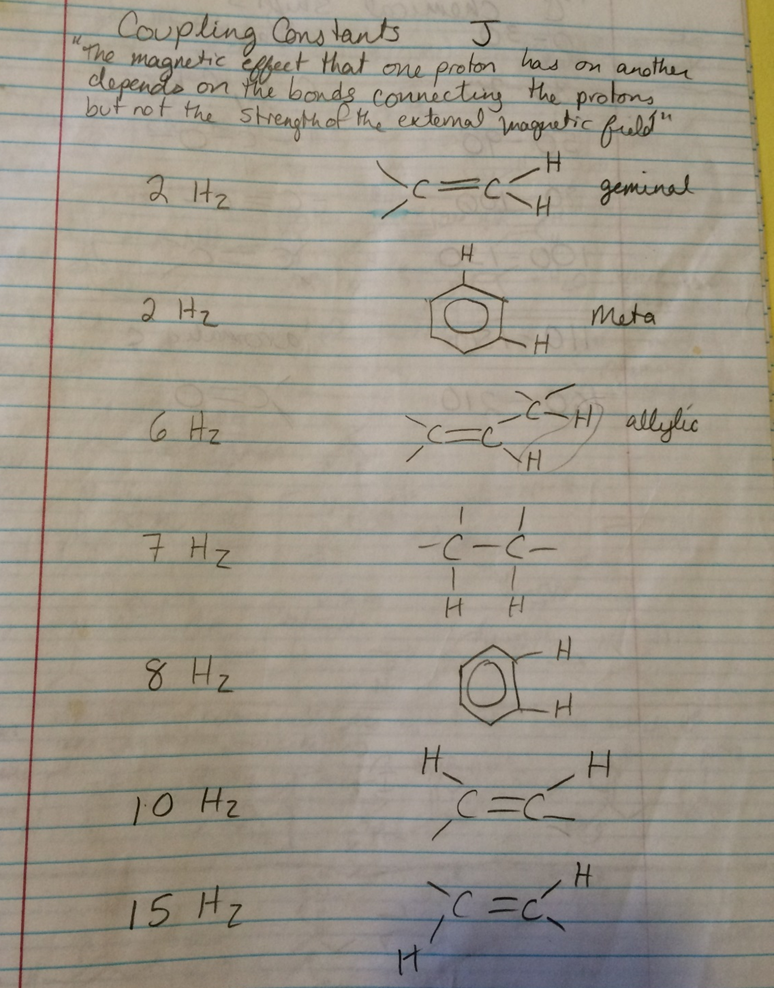 Coupling Constants J
"The magnetic effect that one proton has on another
depends on the bonds connecting the protons
but not the strength of the external magnetic field"
2 Hz C=C H H geminal
2 Hz H H Meta
6 Hz C=C C H H allylic
7 Hz -C-C- H H
8 Hz H H
10 Hz H C=C H
15 Hz H C=C H